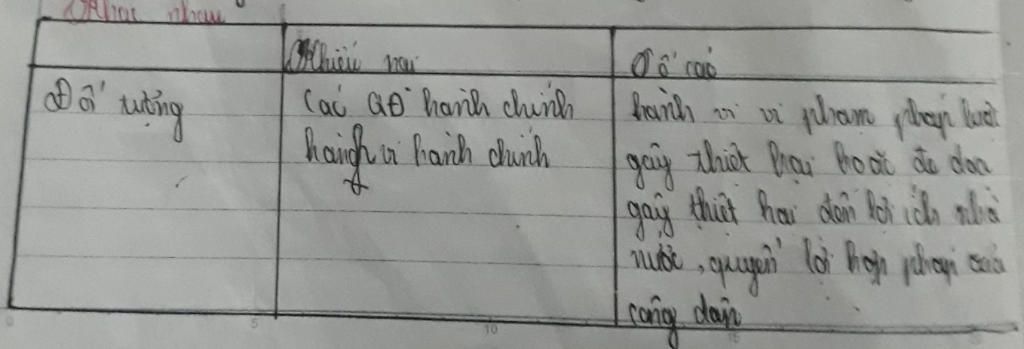 Khác nhau
Khiếu nại
Tố cáo
Đối tượng
Các QĐ hành chính
hành vi hành chính
hành vi vi phạm pháp luật
gây thiệt hại hoặc đe dọa
gây thiệt hại đến lợi ích nhà
nước, quyền lợi hợp pháp của
công dân